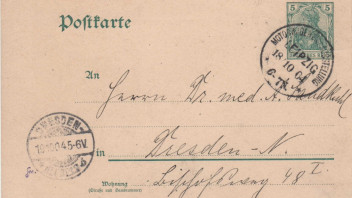 5 5
Postkarte
LEIPZIG
18 10 04
6-7N.
An
Herrn Dr. med. A.
DRESDEN-
19.10.04.5-6V.
in Dresden-N.
Wohnung
(Straße und Hausnummer)
Bischofsweg 48 I